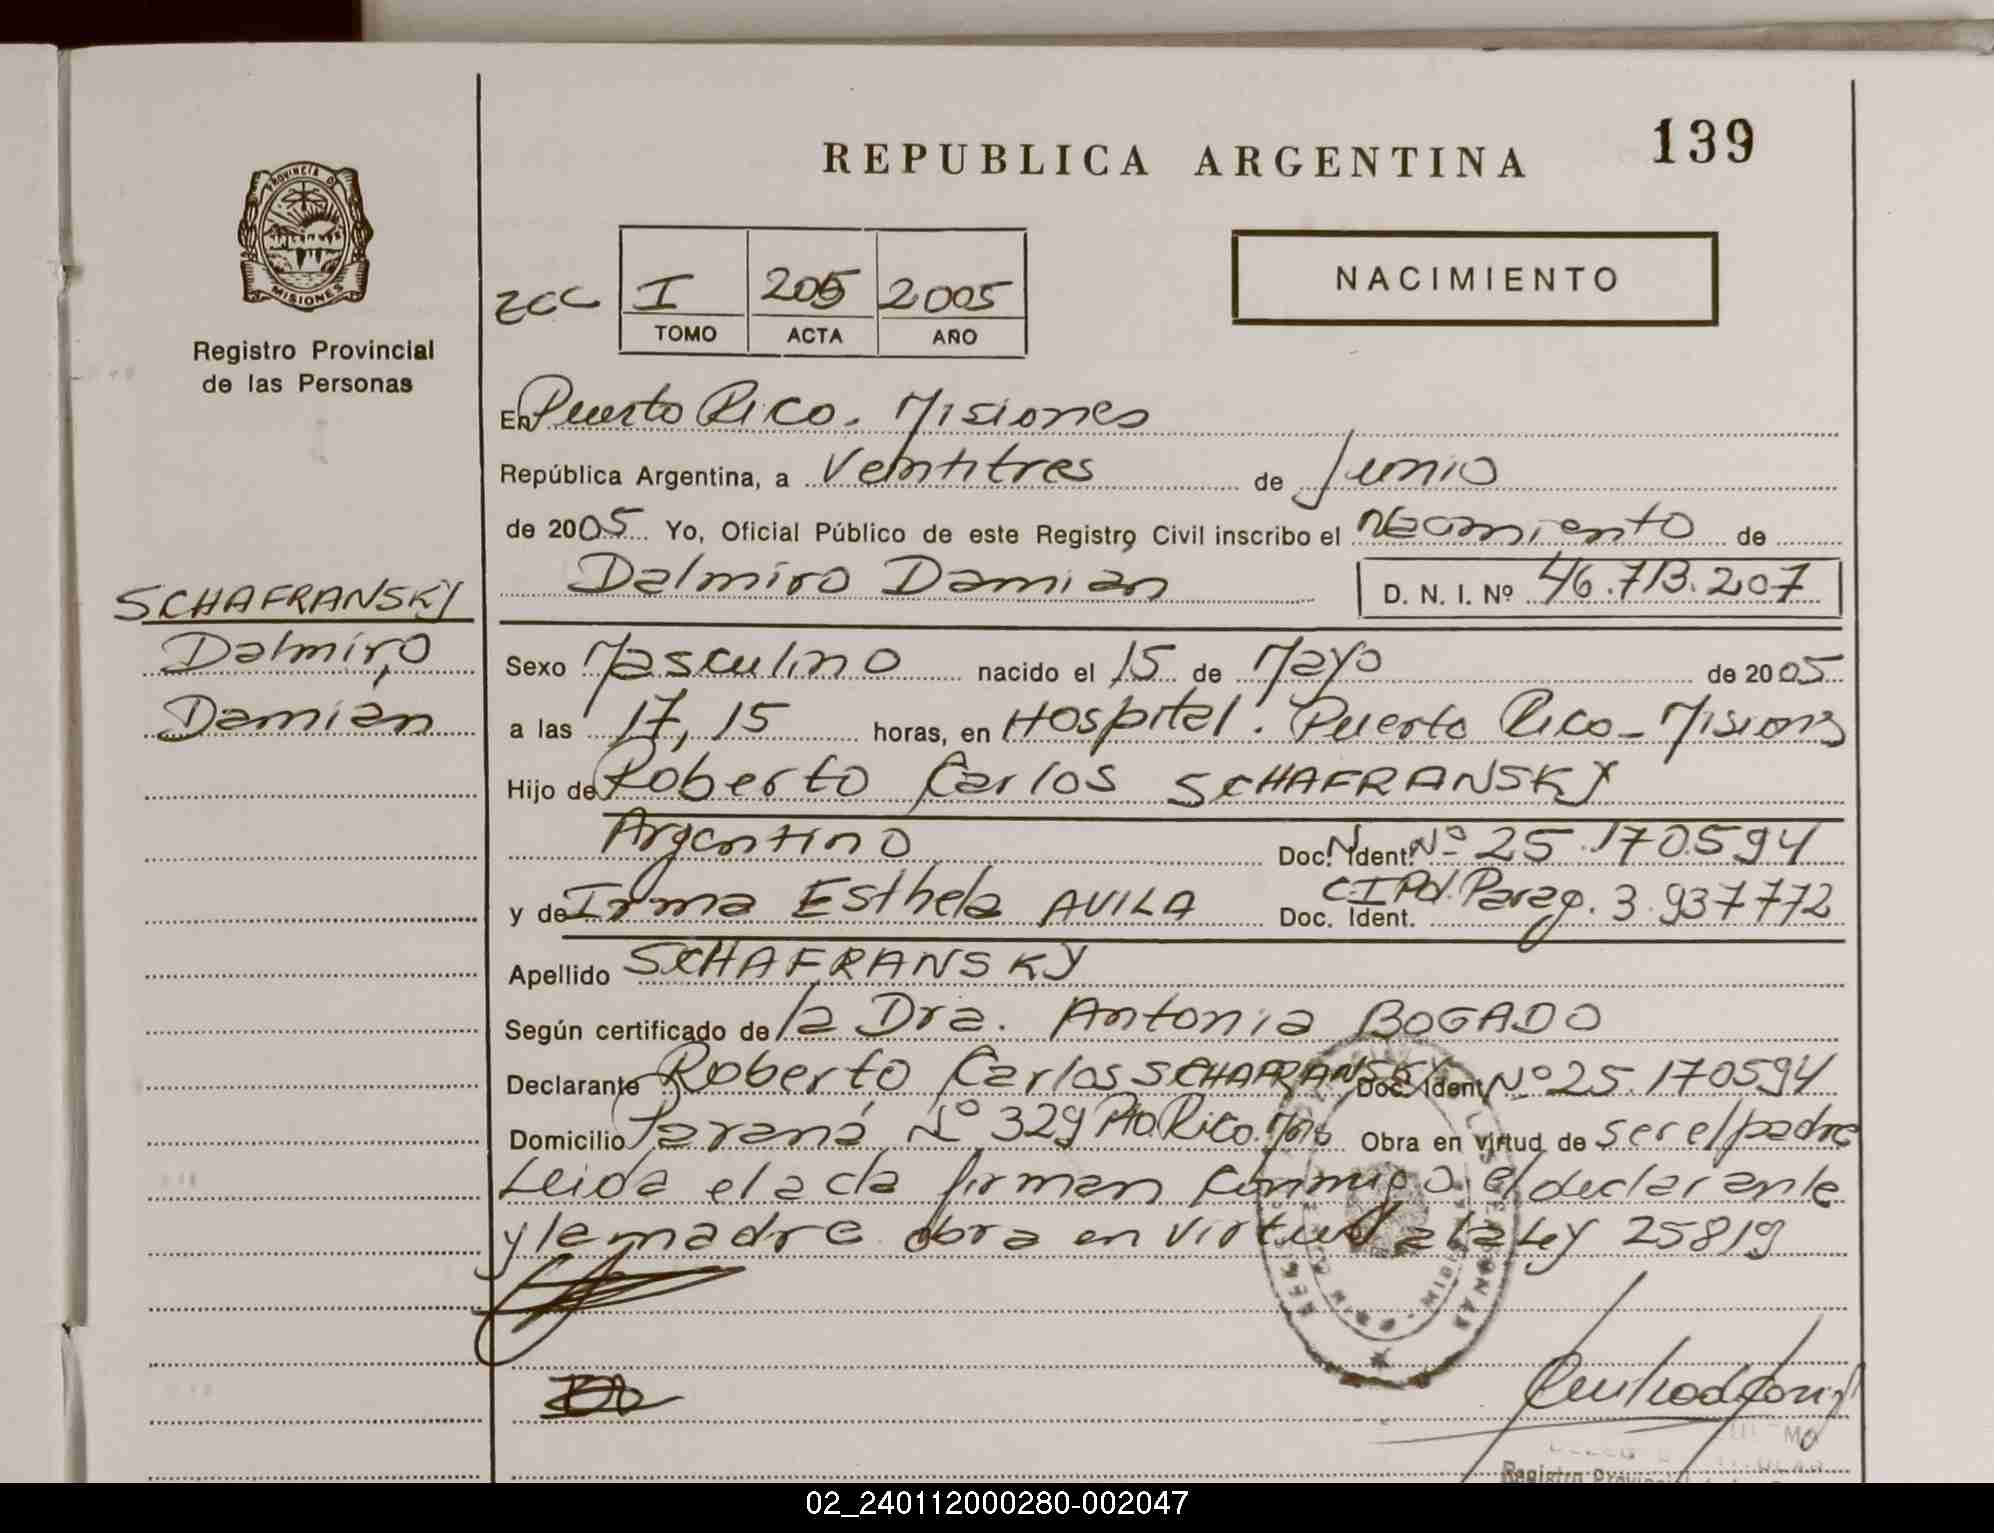 REPUBLICA ARGENTINA
139
PROVINCIA DE
MISIONES
Registro Provincial
de las Personas
NACIMIENTO
I 205 2005
TOMO ACTA AÑO
En Puerto Rico. Misiones
República Argentina, a Veintitres de Junio
de 2005 Yo, Oficial Público de este Registro Civil inscribo el Nacimiento de
Dalmiro Damian D. N. I. Nº 46.713.207
SCHAFRANSKY
Dalmiro
Damián
Sexo Masculino nacido el 15 de Mayo de 2005
a las 17,15 horas, en Hospital. Puerto Rico - Misiones
Hijo de Roberto Carlos SCHAFRANSKY
Argentino Doc. Ident. Nº 25.170594
y de Irma Esthela AVILA Doc. Ident. CI Pol. Parag. 3.937772
Apellido SCHAFRANSKY
Según certificado de la Dra. Antonia BOGADO
Declarante Roberto Carlos SCHAFRANSKY Doc. Ident. Nº 25.170594
Domicilio Paraná Nº 329 Pto Rico. Mnes Obra en virtud de ser el padre
Leida el acta firman conmigo el declarante
y la madre obra en virtud a la Ley 25819
Registro Provincial
02_240112000280-002047